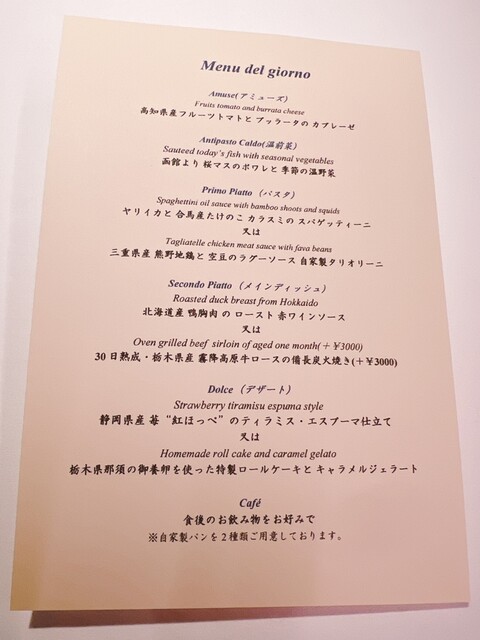 Menu del giorno
Amuse(アミューズ)
Fruits tomato and burrata cheese
高知県産フルーツトマトと ブッラータの カプレーゼ
Antipasto Caldo(温前菜)
Sauteed today's fish with seasonal vegetables
函館より 桜マスのポワレと 季節の温野菜
Primo Piatto （パスタ）
Spaghettini oil sauce with bamboo shoots and squids
ヤリイカと 合馬産たけのこ カラスミの スパゲッティーニ
又は
Tagliatelle chicken meat sauce with fava beans
三重県産 熊野地鶏と 空豆のラグーソース 自家製タリオリーニ
Secondo Piatto （メインディッシュ）
Roasted duck breast from Hokkaido
北海道産 鴨胸肉 の ロースト 赤ワインソース
又は
Oven grilled beef sirloin of aged one month(＋￥3000)
30 日熟成・栃木県産 霧降高原牛ロースの備長炭火焼き(＋￥3000)
Dolce （デザート）
Strawberry tiramisu espuma style
静岡県産 苺 “紅ほっぺ” のティラミス・エスプーマ仕立て
又は
Homemade roll cake and caramel gelato
栃木県那須の御養卵を使った特製ロールケーキと キャラメルジェラート
Café
食後のお飲み物をお好みで
※自家製パンを２種類ご用意しております。